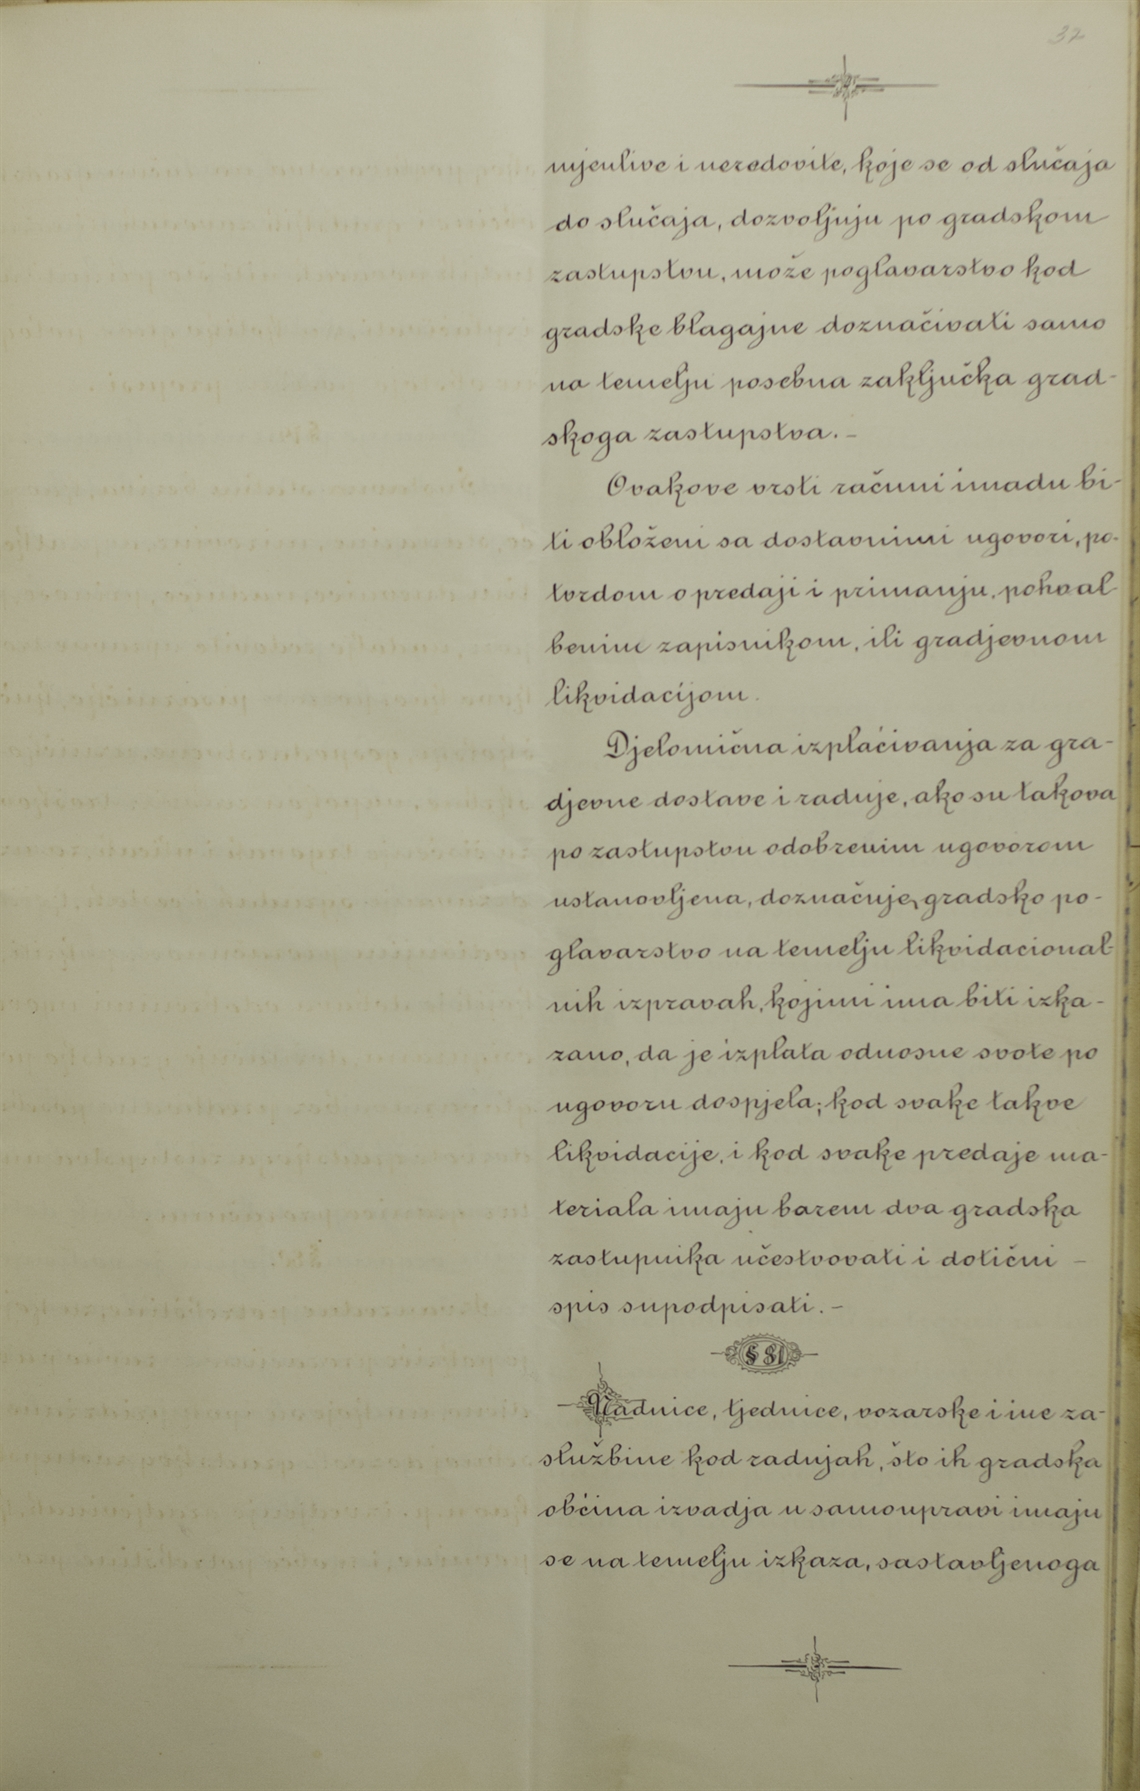 37
mjenlive i neredovite, koje se od slučaja
do slučaja, dozvoljuju po gradskom
zastupstvu, može poglavarstvo kod
gradske blagajne doznačivati samo
na temelju posebna zaključka grad-
skoga zastupstva.-
Ovakove vrsti računi imadu bi-
ti obloženi sa dostavnimi ugovori, po-
tvrdom o predaji i primanju, pohval-
benim zapisnikom, ili gradjevnom
likvidacijom.
Djelomična izplaćivanja za gra-
djevne dostave i radnje, ako su takova
po zastupstvu odobrenim ugovorom
ustanovljena, doznačuje, gradsko po-
glavarstvo na temelju likvidacional-
nih izpravah, kojimi ima biti izka-
zano, da je izplata odnosne svote po
ugovoru dospjela; kod svake takve
likvidacije, i kod svake predaje ma-
teriala imaju barem dva gradska
zastupnika učestvovati i dotični -
spis supodpisati.-
§ 81
Nadnice, tjednice, vozarske i ine za-
službine kod radnjah, što ih gradska
občina izvadja u samoupravi imaju
se na temelju izkaza, sastavljenoga